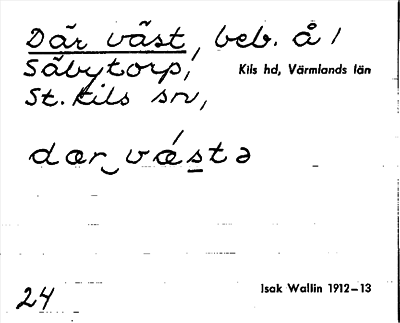 Där väst, beb. å /
Säbytorp, Kils hd, Värmlands län
St. Kils sn,
dær‿vǽstə
24 Isak Wallin 1912–13